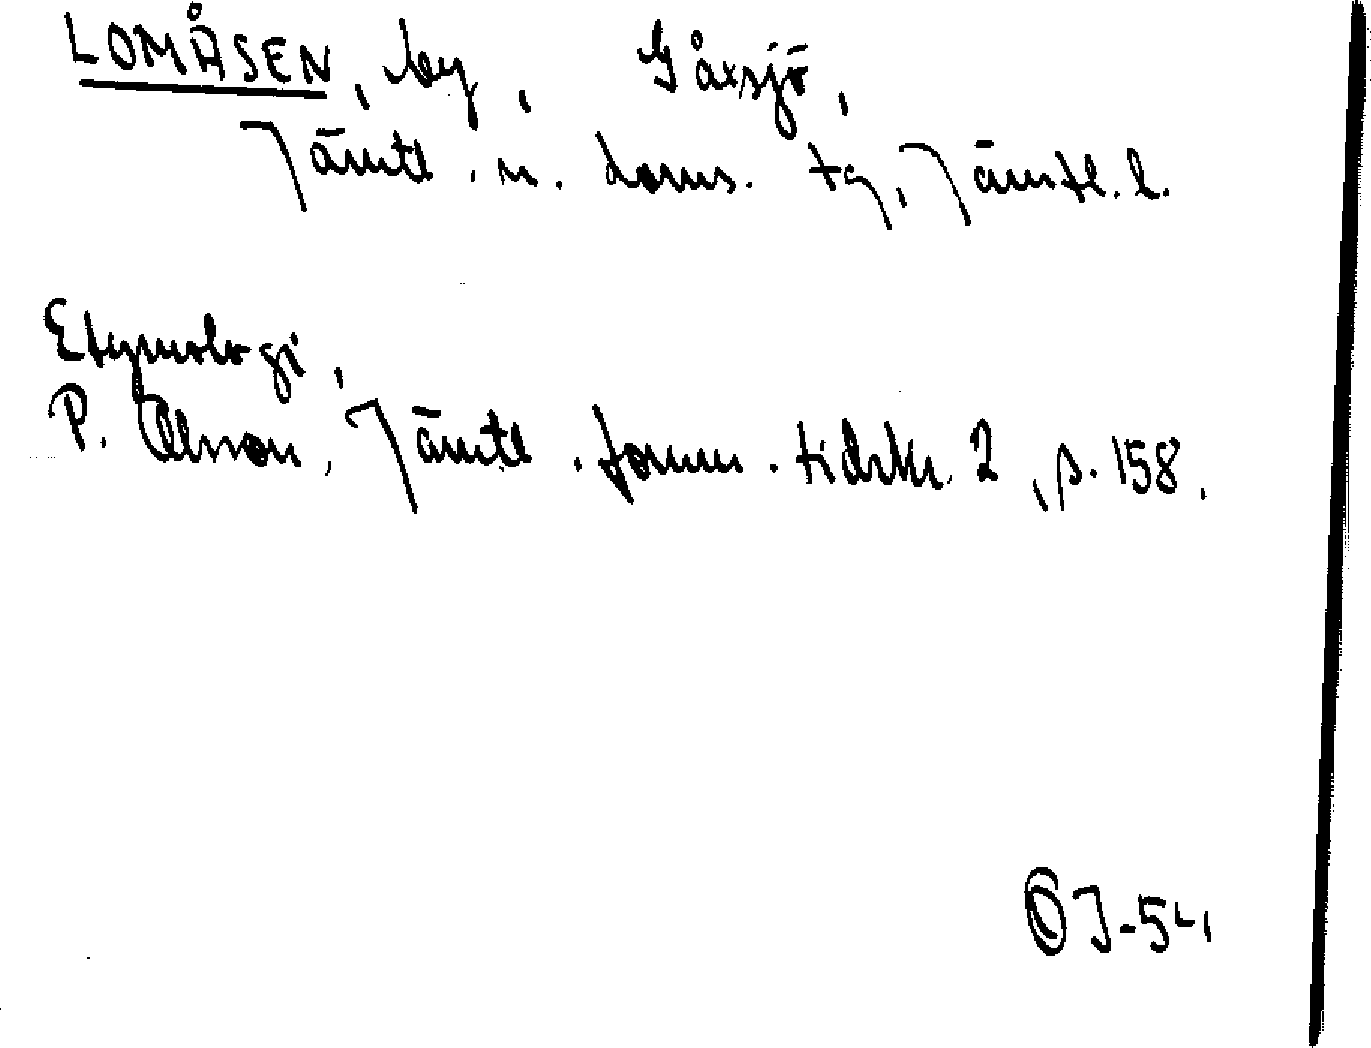 LOMÅSEN, by, Gåxsjö,
Jämtl. n. doms. tg, Jämtl. l.
Etymologi,
P. Olsson, Jämtl. fornm. tidskr. 2, s. 158.
J-54